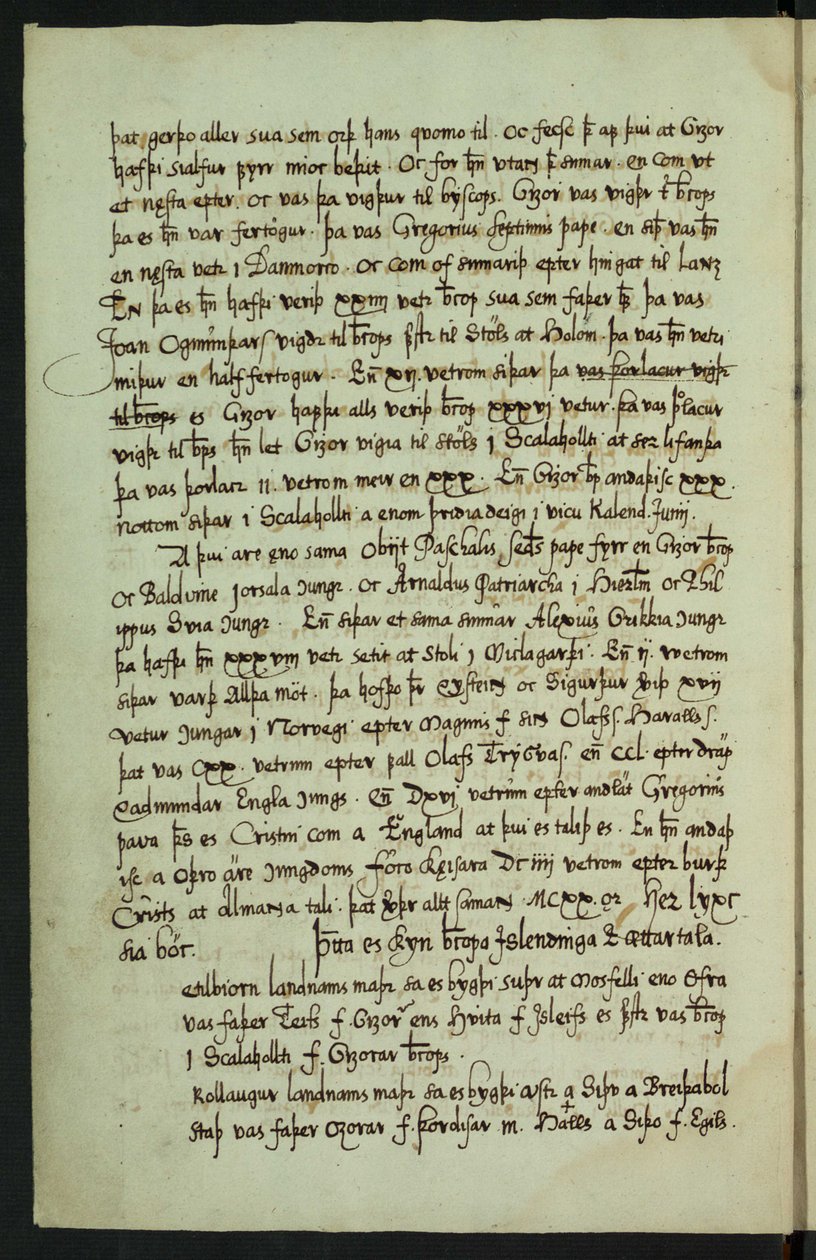 þat gerþo aller sua sem orþ hans qvomo til. Oc fecsc þ̄ aꝼ þui at Gizor
hafþi sialfur ꝼyrr mioc beþit. Oc for hn̄ vtan þ̄ sumar. en com vt
et nęsta epter. oc vas þa vigþur til byscops. Gizor vas vigþr t̄ b̄cops
þa es hn̄ var fertögur. þa vas Gregorius septimus pape. en siþ vas hn̄
en nęsta vetr i Danmorco. oc com of sumariþ epter hingat til Lanz
En þa es hn̄ hafþi veriþ xxiiii vetr b̄cop sua sem faþer h̄s þa vas
Joan Ogmunþars vigdr til b̄cops fstr til Stöls at Holöm. þa vas hn̄ vetri
miþur en half fertogur. En̄ xij. vetrom siþar þa vas þorlacur vigþr
til b̄cops es Gizor haꝼþi alls veriþ b̄cop xxxvi vetur. þa vas þ̊lacur
vigþr til b̄ps hn̄ let Gizor vigia til stöls i Scalahollti at ser lifanþa
þa vas þorlacr ii. vetrom meir en xxx. En̄ Gizor b̄p andaþisc xxx.
nottom siþar i Scalahollti a enom þridia deigi i vicu Kalend. Junij.
A þui are ęno sama Obijt Paschalis seds pape fyrr en Gizor b̄cop
oc Balduine jorsala jungr. oc Arnaldus Patriarcha i Hierl̄m oc Phil
ippus Svia jungr. En̄ siþar et sama sumar Alexius Grikkia jungr
þa hafþi hn̄ xxxviii vetr setit at stoli i Miclagarþi. En̄ ij. vetrom
siþar varþ Allþa möt. þa hofþo þr̄ eysteinn oc Sigurþur veriþ xvij
vetur jungar i Norvegi epter Magnus f sinn Olafs s. Haralls s.
þat vas cxx. vetrum epter ꝼall Olafs Tryggva s. en̄ ccl. epter dräp
eadmundar Engla jungs. en̄ Dxvi vetrum epter andlät Gręgorius
pava þs es Cristni com a England at þui es taliþ es. En hn̄ andaþ
isc a oþro äre jungdoms föco kęisara Dc iiii vetrom epter burþ
Crists at Almanna tali. þat vþr allt samann MCXX. ǫr Her lyxc
sia böc. þ̄tta es kyn b̄copa jslendinga & ættartala.
etilbiorn landnams maþr sa es bygþi suþr at Mosfelli eno efra
vas faþer Teits f. Gizor ens Hvita f Jsleifs es fstr vas b̄cop
i Scalahollti f. Gizorar b̄cops.
Rollaugur landnams maþr sa es bygþi austr a Siþu a Breiþabol
staþ vas faþer Ozorar f. þordisar m. Halls a Siþo f. Egils.